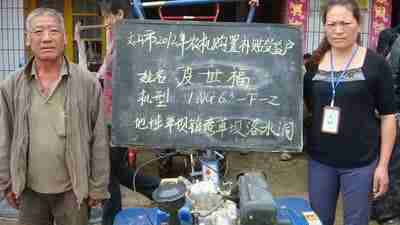 文山市2012年农机购置补贴受益户
姓名 皮世福
机型 1WG6.3-F-Z
地址 平坝镇底草坝落水洞